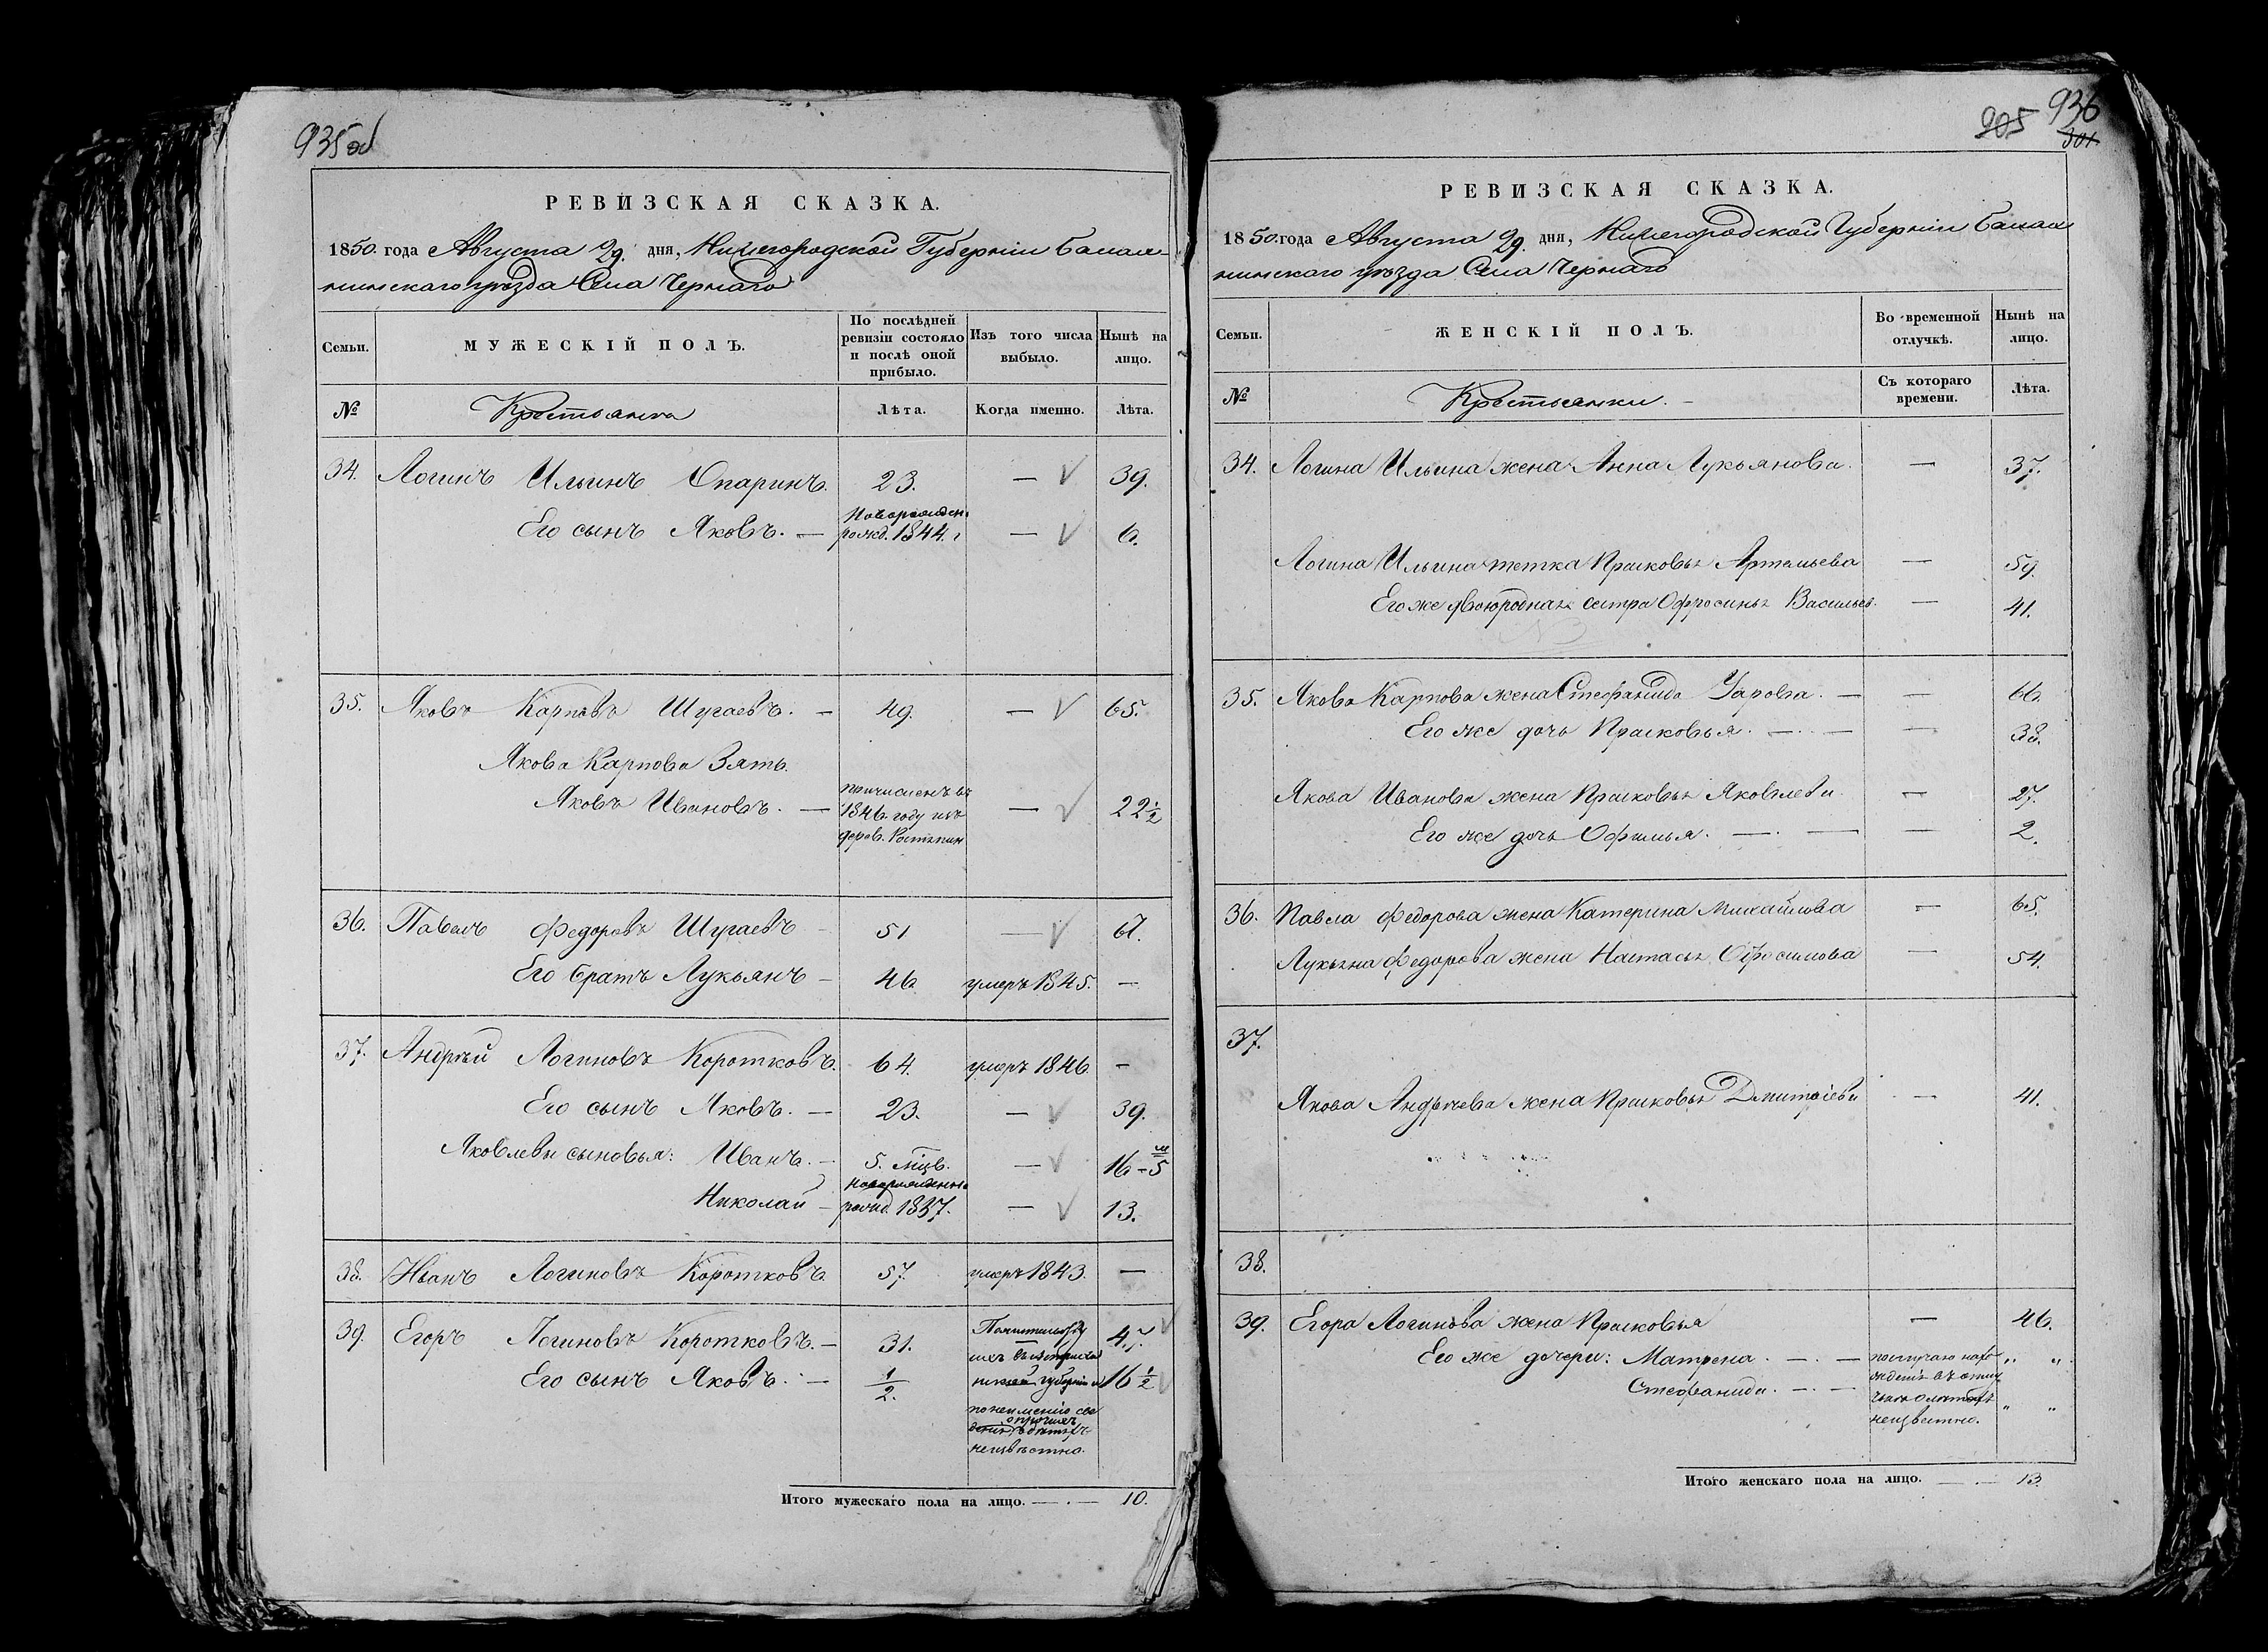 935 об
РЕВИЗСКАЯ СКАЗКА.
1850. года Августа 29. дня, Нижегородской Губерніи Балах-
нинскаго уѣзда Села Чернаго
Семьи.
МУЖЕСКІЙ ПОЛЪ.
По послѣдней ревизіи состояло и послѣ оной прибыло.
Изъ того числа выбыло.
Нынѣ на лицо.
№
Крестьяне
Лѣта.
Когда именно.
Лѣта.
34. Логинъ Ильинъ Опаринъ. 23. — 39.
Новорожден.
Его сынъ Яковъ. — рожд. 1844. г — 6.
35. Яковъ Карповъ Шугаевъ. — 49. — 65.
Якова Карпова Зять.
Яковъ Ивановъ. — причисленъ въ 1846. году изъ дерев. — 22 1/2
36. Павелъ Федоровъ Шугаевъ 51 — 67.
Его братъ Лукьянъ — 46 умеръ 1845. —
37. Андрѣй Логиновъ Коротковъ. 64. умеръ 1846. —
Его сынъ Яковъ. — 23. — 39.
Яковлевы сыновья: Иванъ. — 5. мцв. — 16 - 5 м
новорожденны
Николай — рожд. 1837. — 13.
38. Иванъ Логиновъ Коротковъ. 57. умеръ 1843. —
39. Егоръ Логиновъ Коротковъ. — 31. 47.
Его сынъ Яковъ. — 1/2. губерніи 16 1/2
по неимению све
о прочихъ
неизвѣстно.
Итого мужескаго пола на лицо. — . — 10.
205 936
301
РЕВИЗСКАЯ СКАЗКА.
1850. года Августа 29. дня, Нижегородской Губерніи Балах
нинскаго уѣзда Села Чернаго
Семьи.
ЖЕНСКІЙ ПОЛЪ.
Во временной отлучкѣ.
Нынѣ на лицо.
№
Крестьянки. —
Съ котораго времени.
Лѣта.
34. Логина Ильина жена Анна Лукьянова. — 37.
Логина Ильина тетка Прасковья Артемьева — 59.
Его же двоюродная сестра Офросинья Васильев. — 41.
35. Якова Карпова жена Степанида Уарова. — — 66.
Его же дочь Прасковья. — . — — 38.
Якова Иванова жена Прасковья Яковлева. — 27.
Его же дочь Офимья. — . — — 2.
36. Павла Федорова жена Катерина Михайлова — 65.
Лукьяна Федорова жена Настасья Офросимова — 54.
37.
Якова Андрѣева жена Прасковья Дмитріева — 41.
38.
39. Егора Логинова жена Прасковья — 46.
Его же дочери: Матрена. — . — по случаю нахо- „ „
Степанида. — . — жденія въ отлуч
неизвѣстно. „ „
Итого женскаго пола на лицо. — — 13.